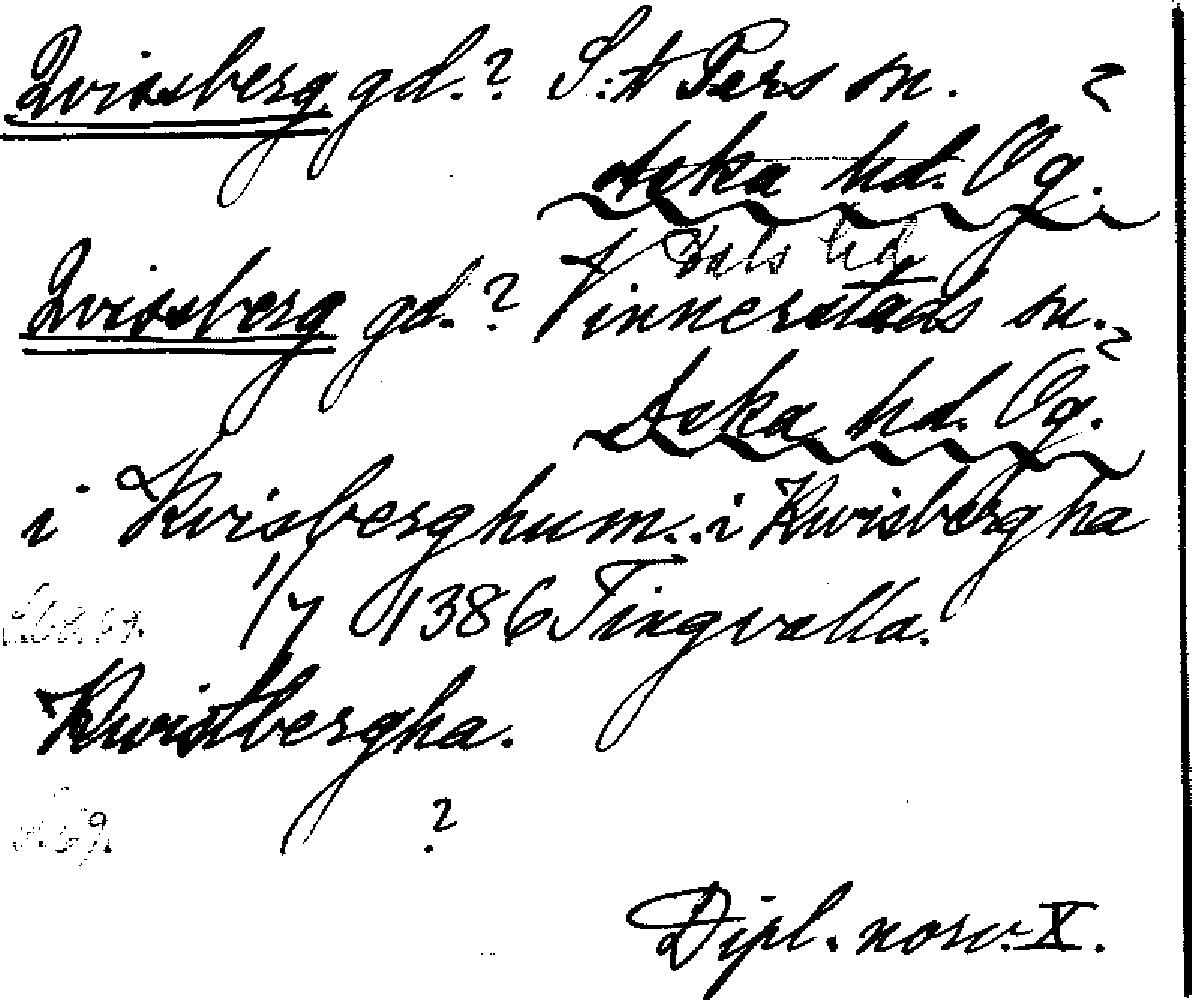 Qvissberg gd.? S:t Pers sn. ?
Aska hd. Ög.
Dals hd
Qvissberg gd.? Vinnerstads sn. ?
Aska hd. Ög.
i Kvisberghum. i Kwisbergha
1/7 1386 Tingvalla.
Kwistbergha.
?
Dipl. norv. X.